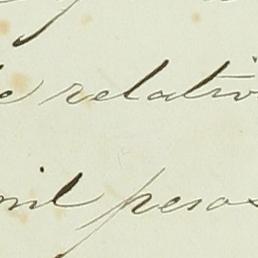 relativ
mil pesos